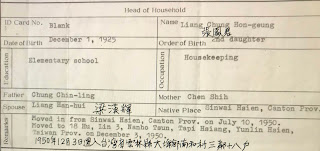 Head of Household
ID Card No. Blank
Name Liang Chung Hon-geung
Date of Birth December 1, 1925
Order of Birth 2nd daughter
Education Elementary school
Occupation Housekeeping
Father Chung Chin-ling
Mother Chen Shih
Spouse Liang Han-hui 梁漢輝
Native Place Sinwai Hsien, Canton Prov.
Remarks
Moved in from Sinwai Hsien, Canton Prov. on July 10, 1950.
Moved to 18 Hu, Lin 3, Nanho Tsun, Tapi Hsiang, Yunlin Hsien,
Taiwan Prov. on December 3, 1950.
1950年12月3日遷入台灣省雲林縣大埤鄉南和村三鄰十八戶